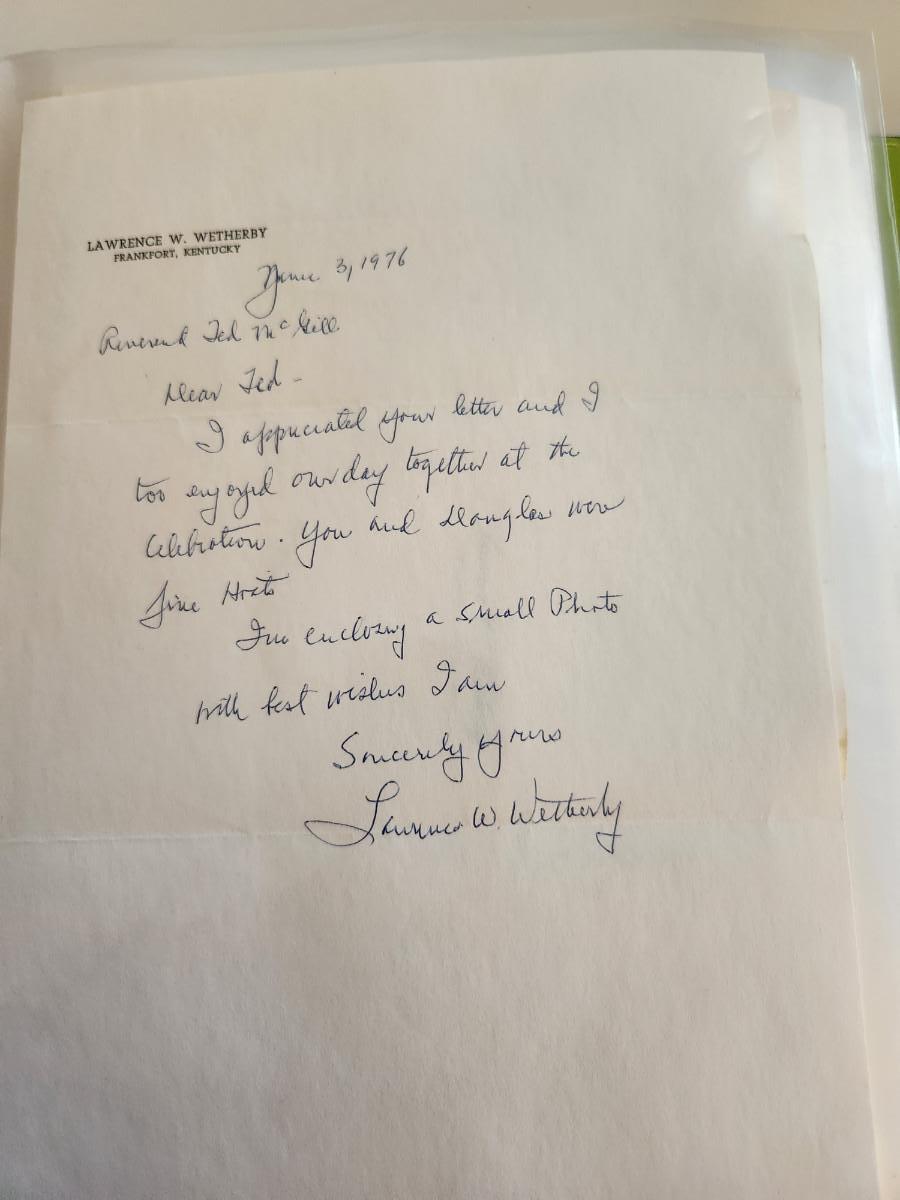 LAWRENCE W. WETHERBY
FRANKFORT, KENTUCKY
June 3, 1976
Reverend Ted McGill
Dear Ted -
I appreciated your letter and I
too enjoyed our day together at the
Celebration. You and Douglas were
fine Hosts
I'm enclosing a small Photo
with best wishes I am
Sincerely yours
Lawrence W. Wetherby